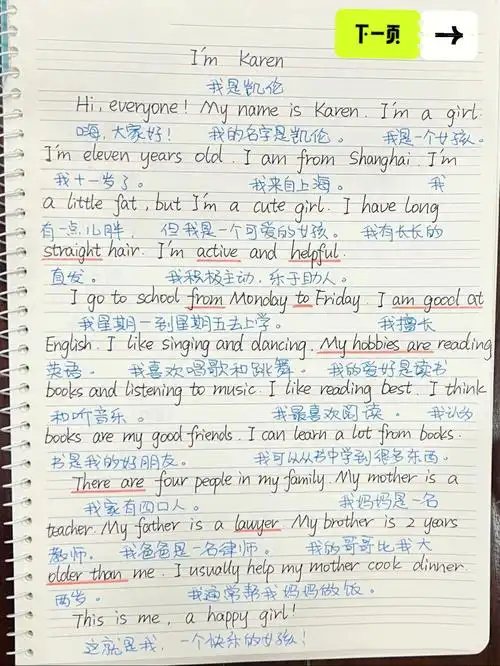 下一页 →
I'm Karen
我是凯伦
Hi, everyone! My name is Karen. I'm a girl.
嗨,大家好! 我的名字是凯伦。 我是一个女孩。
I'm eleven years old. I am from Shanghai. I'm
我十一岁了。 我来自上海。 我
a little fat, but I'm a cute girl. I have long
有一点儿胖, 但我是一个可爱的女孩。 我有长长的
straight hair. I'm active and helpful.
直发。 我积极主动,乐于助人。
I go to school from Monday to Friday. I am good at
我星期一到星期五去上学。 我擅长
English. I like singing and dancing. My hobbies are reading
英语。 我喜欢唱歌和跳舞。 我的爱好是读书
books and listening to music. I like reading best. I think
和听音乐。 我最喜欢阅读。 我认为
books are my good friends. I can learn a lot from books.
书是我的好朋友。 我可以从书中学到很多东西。
There are four people in my family. My mother is a
我家有四口人。 我妈妈是一名
teacher. My father is a lawyer. My brother is 2 years
教师。 我爸爸是一名律师。 我的哥哥比我大
older than me. I usually help my mother cook dinner.
两岁。 我通常帮我妈妈做饭。
This is me, a happy girl!
这就是我,一个快乐的女孩!